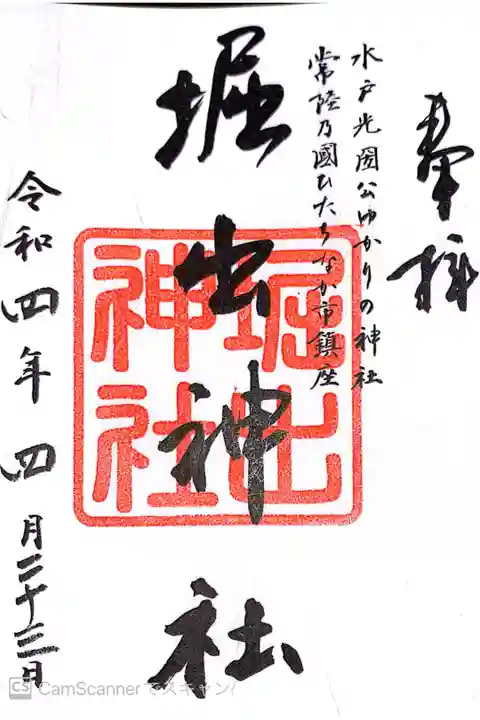 奉拝
水戸光圀公ゆかりの神社
常陸乃國ひたちなか市鎮座
堀出神社
堀出
神社
令和四年四月二十三日
CS CamScanner でスキャン